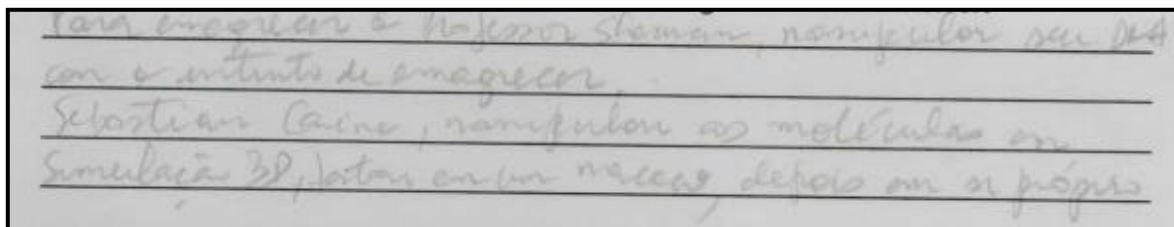 Para emagrecer o Professor Sherman, manipulou seu DNA
com o intuito de emagrecer.
Sebastian Caine, manipulou as moléculas em
Simulação 3D, testou em um macaco, depois em si próprio